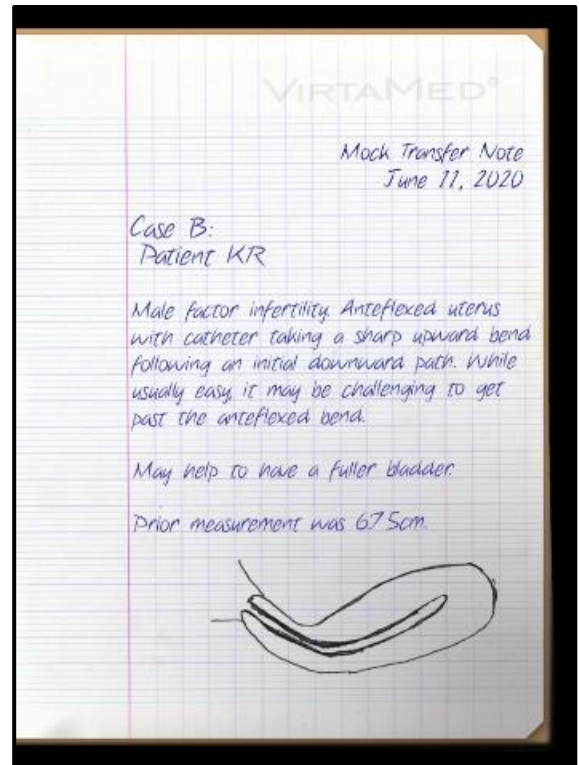 VIRTAMED®
Mock Transfer Note
June 11, 2020
Case B:
Patient KR
Male factor infertility. Anteflexed uterus
with catheter taking a sharp upward bend
following an initial downward path. While
usually easy, it may be challenging to get
past the anteflexed bend.
May help to have a fuller bladder.
Prior measurement was 6.75cm.